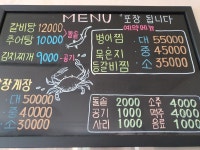 MENU 포장 됩니다
갈비탕 12000
추어탕 10000
김치찌개 9000
돌솥
공기
예약메뉴
병어찜 대 55000
묵은지 중 45000
등갈비찜 소 35000
간장게장
대 50000
중 40000
소 30000
돌솥 2000 소주 4000
공기 1000 맥주 4000
사리 1000 음료 1000